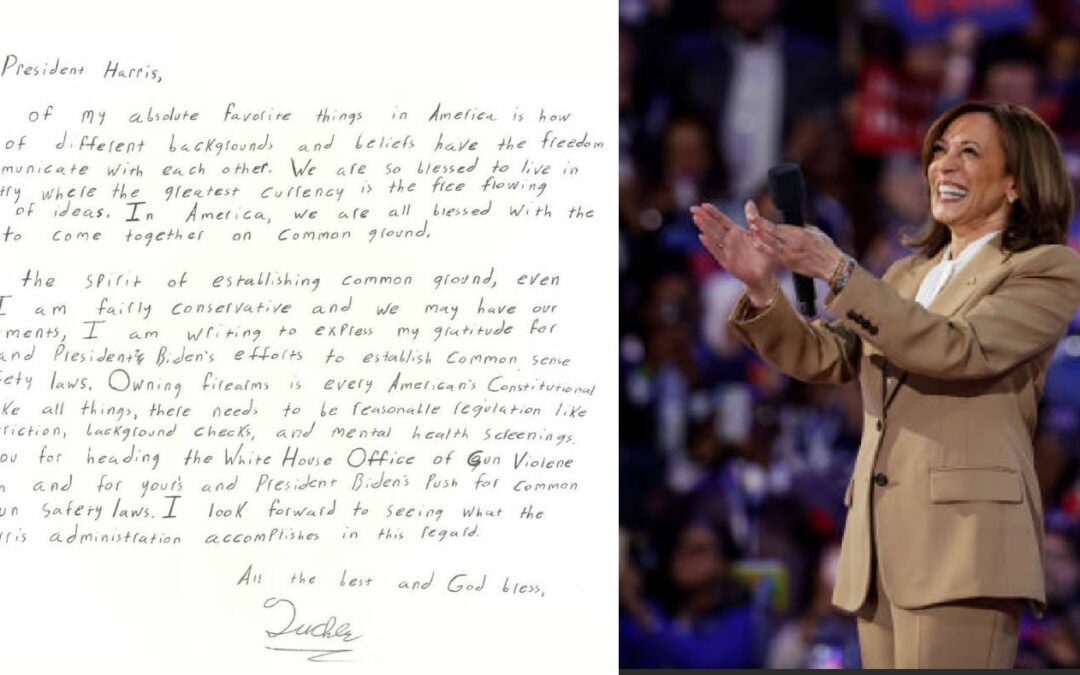 President Harris,
of my absolute favorite things in America is how
of different backgrounds and beliefs have the freedom
municate with each other. We are so blessed to live in
try where the greatest currency is the free flowing
of ideas. In America, we are all blessed with the
to come together on common ground.
the spirit of establishing common ground, even
I am fairly conservative and we may have our
ments, I am writing to express my gratitude for
and President's Biden's efforts to establish common sense
fety laws. Owning firearms is every American's Constitutional
ke all things, there needs to be reasonable regulation like
riction, background checks, and mental health screenings.
ou for heading the White House Office of Gun Violene
n and for your's and President Biden's Push for common
un safety laws. I look forward to seeing what the
rris administration accomplishes in this regard.
All the best and God bless,